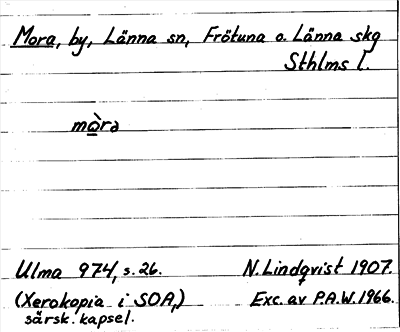 Mora, by, Länna sn, Frötuna o. Länna skg
Sthlms l.
mò̲rə
Ulma 974, s. 26. N. Lindqvist 1907.
(Xerokopia i SOA,) Exc. av P.A.W. 1966.
särsk. kapsel.